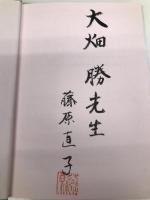 大畑 勝先生
藤原直子